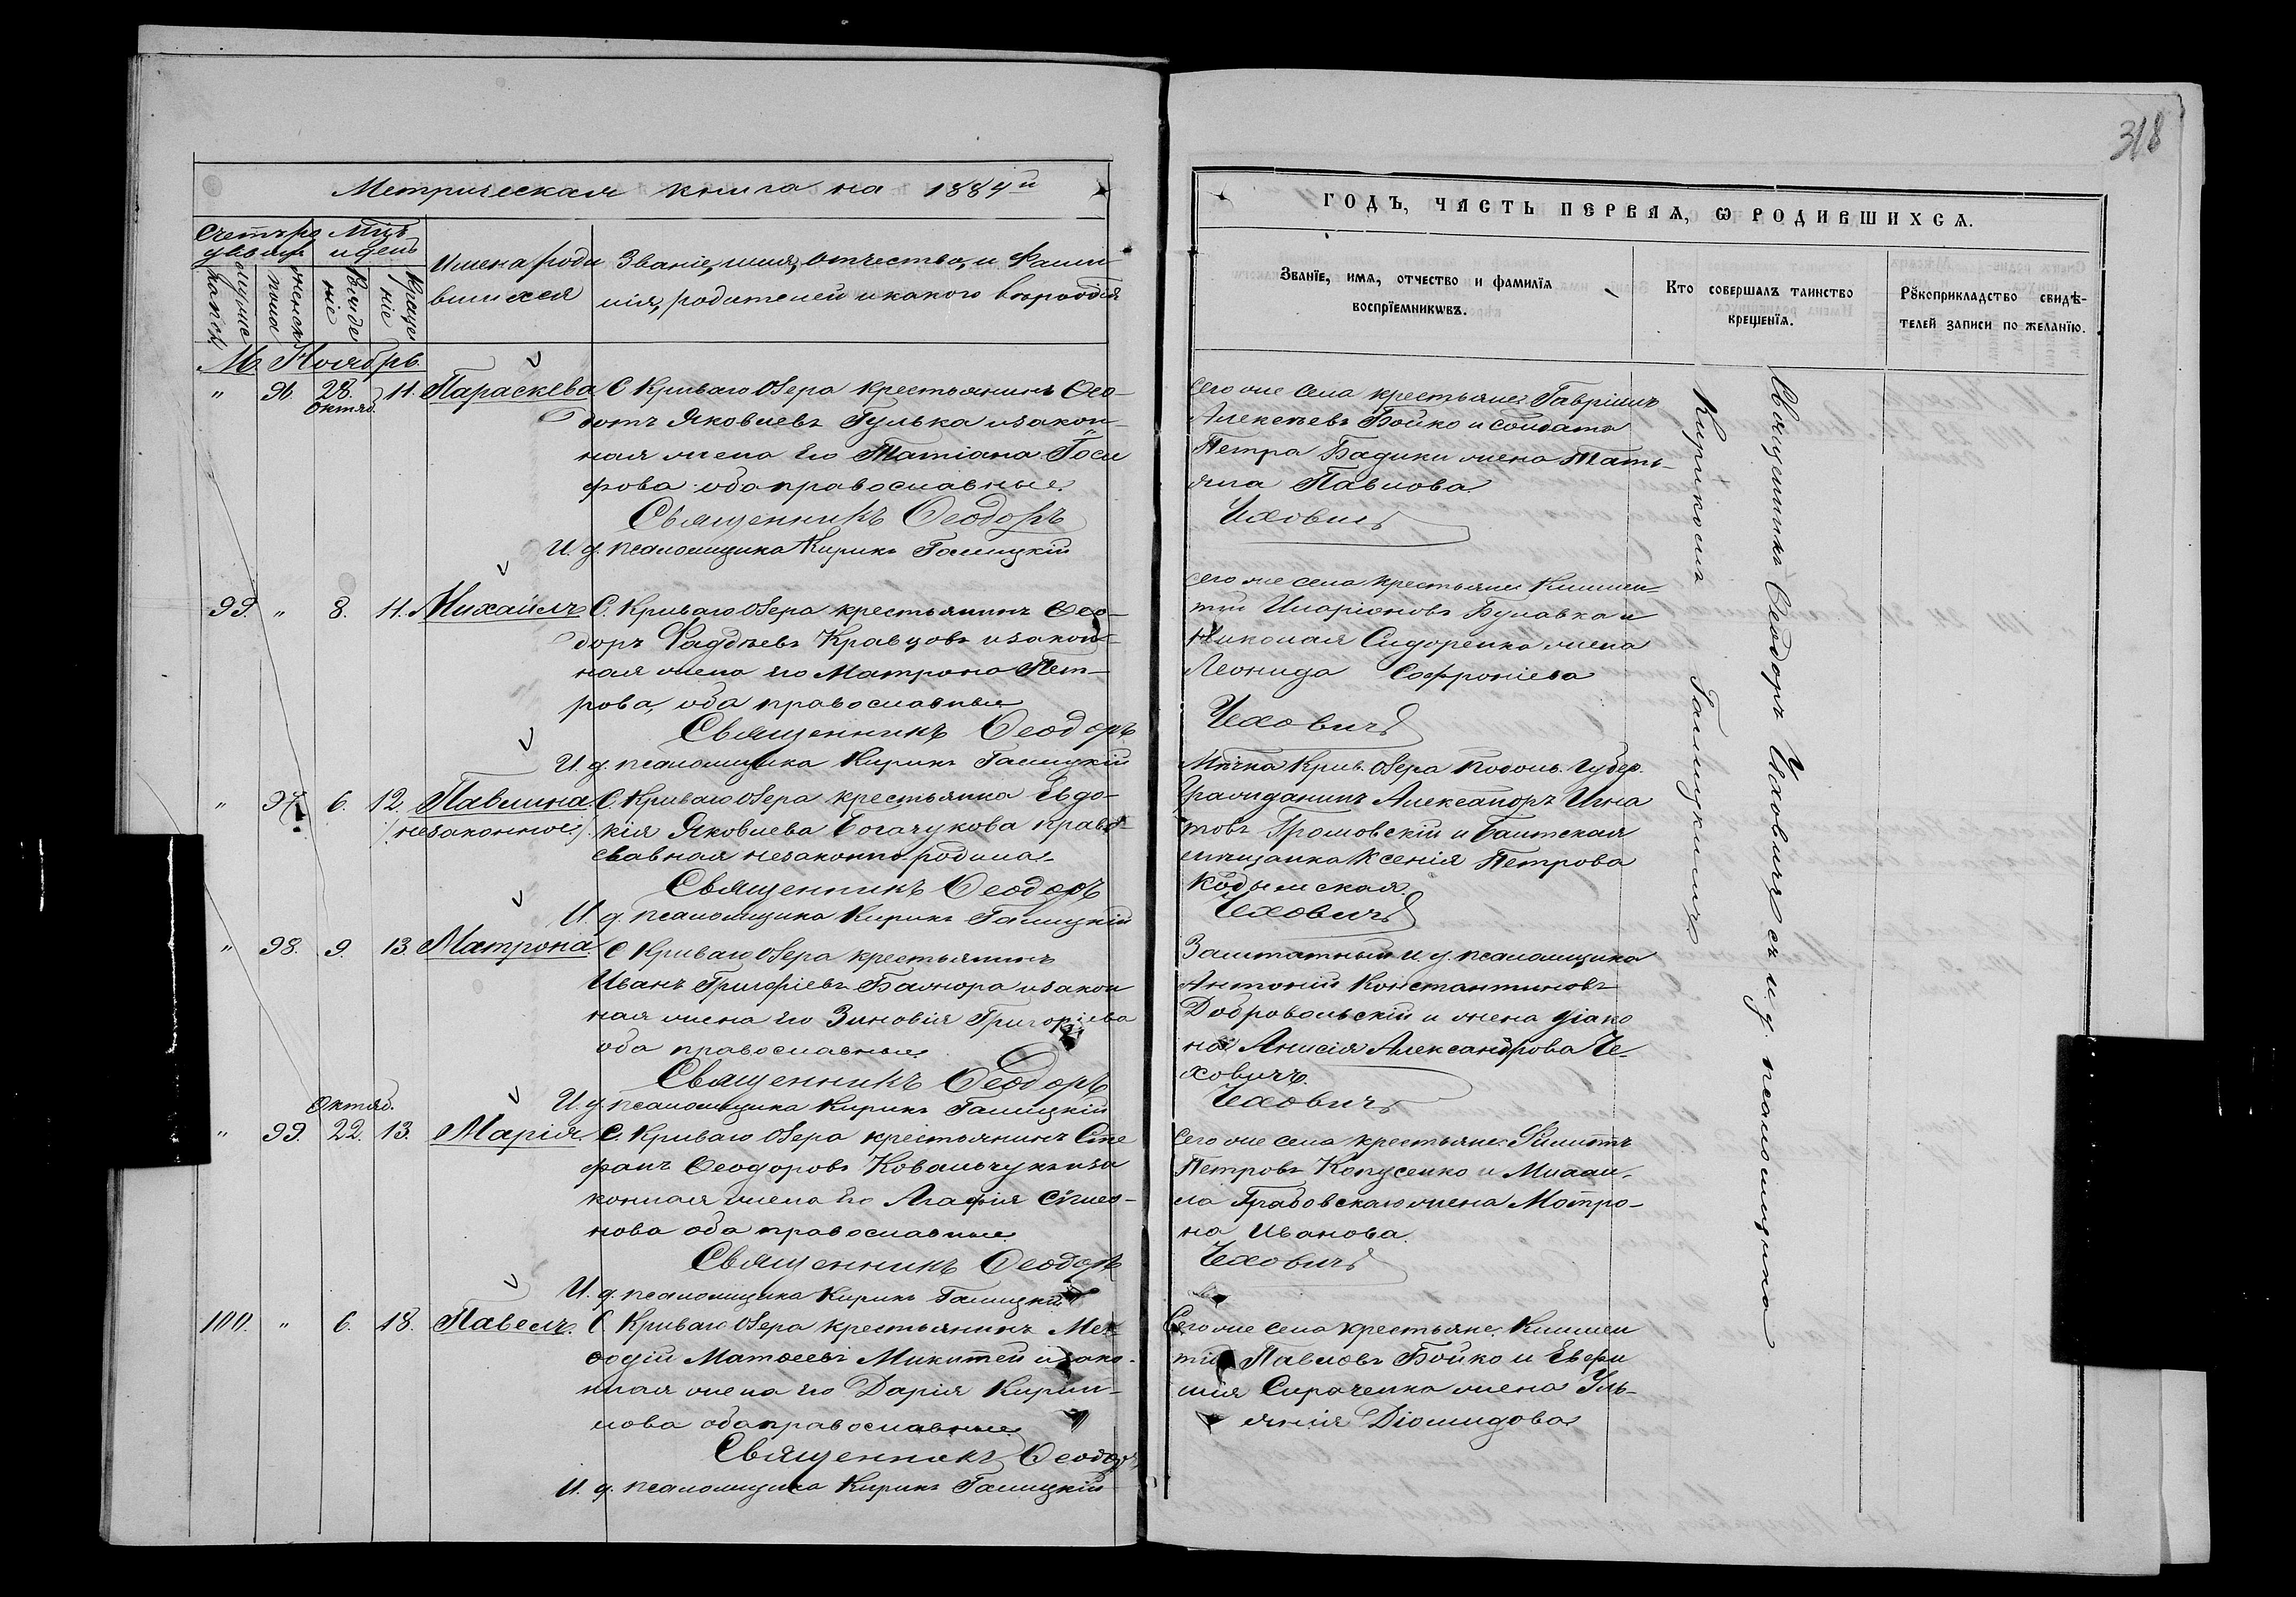 318
Метрическая книга на 1884й
ГОДЪ, ЧАСТЬ ПЕРВАЯ, Ѡ РОДИВШИХСЯ.
Счетъ ро
дивш.
Мцъ
и день
мужеска
пола
женска
Рожде
ніе
Креще
ніе
Имена роди
вшихся
Званіе, имя, отчество, и фами
лія, родителей и какого вѣроисп.
Званїе, имя, отчество и фамилїя
воспрїемникωвъ.
Кто совершалъ таинство
крещенїя.
Рꙋкоприкладство свидѣ-
телей записи по желанїю.
М. Ноябрь.
" 96. 28. 11. Параскева
Октяб.
С Криваго Озера крестьянинъ Ѳео-
дотъ Яковлевъ Гулька и закон-
ная жена его Татіана Іоси
фова оба православные.
Священникъ Ѳеодоръ
И. д. псаломщика Кирикъ Галицкій
сего же села крестьяне: Гавріилъ
Алексѣевъ Бойко и солдата
Петра Бадики жена Тать-
яна Павлова.
Чеховичъ
99. " 8. 11. Михаилъ
С. Криваго Озера крестьянинъ Ѳео-
доръ Фаддѣевъ Кравцовъ и закон-
ная жена его Матрона Пет-
рова, оба православные
Священникъ Ѳеодоръ
И. д. псаломщика Кирикъ Галицкій
сего же села крестьяне Климен-
тій Иларіоновъ Булавка и
Николая Сидоренка жена
Леонида Софроніева
Чеховичъ
" 97. 6. 12. Павлина
/незаконное/.
С. Криваго Озера крестьянка Евдо-
кія Яковлева Богачукова право-
славная незаконно родила.
Священникъ Ѳеодоръ
И. д. псаломщика Кирикъ Галицкій
Мѣчка Крив. Озера Подоль. Губер.
Гражданинъ Александръ Игна
товъ Громовскій и Балтская
мѣщанка Ксенія Петрова
Кодымская.
Чеховичъ
" 98. 9. 13. Матрона.
С Криваго Озера крестьянинъ
Иванъ Григоріевъ Бажора и закон
ная жена его Зиновія Григоріева
оба православные
Священникъ Ѳеодоръ
И. д. псаломщика Кирикъ Галицкій
Заштатный и. д. псаломщика
Антоній Константиновъ
Добровольскій и жена діако
на Анисія Александрова Че-
ховичъ.
Чеховичъ
Октяб.
" 99. 22. 13. Марія.
С. Криваго Озера крестьянинъ Сте
фанъ Ѳеодоровъ Ковальчукъ и за
конная жена его Агафія Сѵмео-
нова оба православные
Священникъ Ѳеодоръ
И. д. псаломщика Кирикъ Галицкій
Сего же села крестьяне: Филиппъ
Петровъ Копусенко и Михаи-
ла Грабовскаго жена Матро-
на Иванова.
Чеховичъ
100. " 6. 18. Павелъ.
С. Криваго Озера крестьянинъ Ме-
ѳодій Матѳеевъ Микитей и зако-
нная жена его Дарія Кирил-
лова оба православные
Священникъ Ѳеодоръ
И. д. псаломщика Кирикъ Галицкій
Сего же села крестьяне. Климен
тій Павловъ Бойко и Евфи
мія Сираченка жена Уль-
янія Діомидова
Священникъ Ѳеодоръ Чеховичъ съ и. д. псаломщика
Кирикомъ Галицкимъ